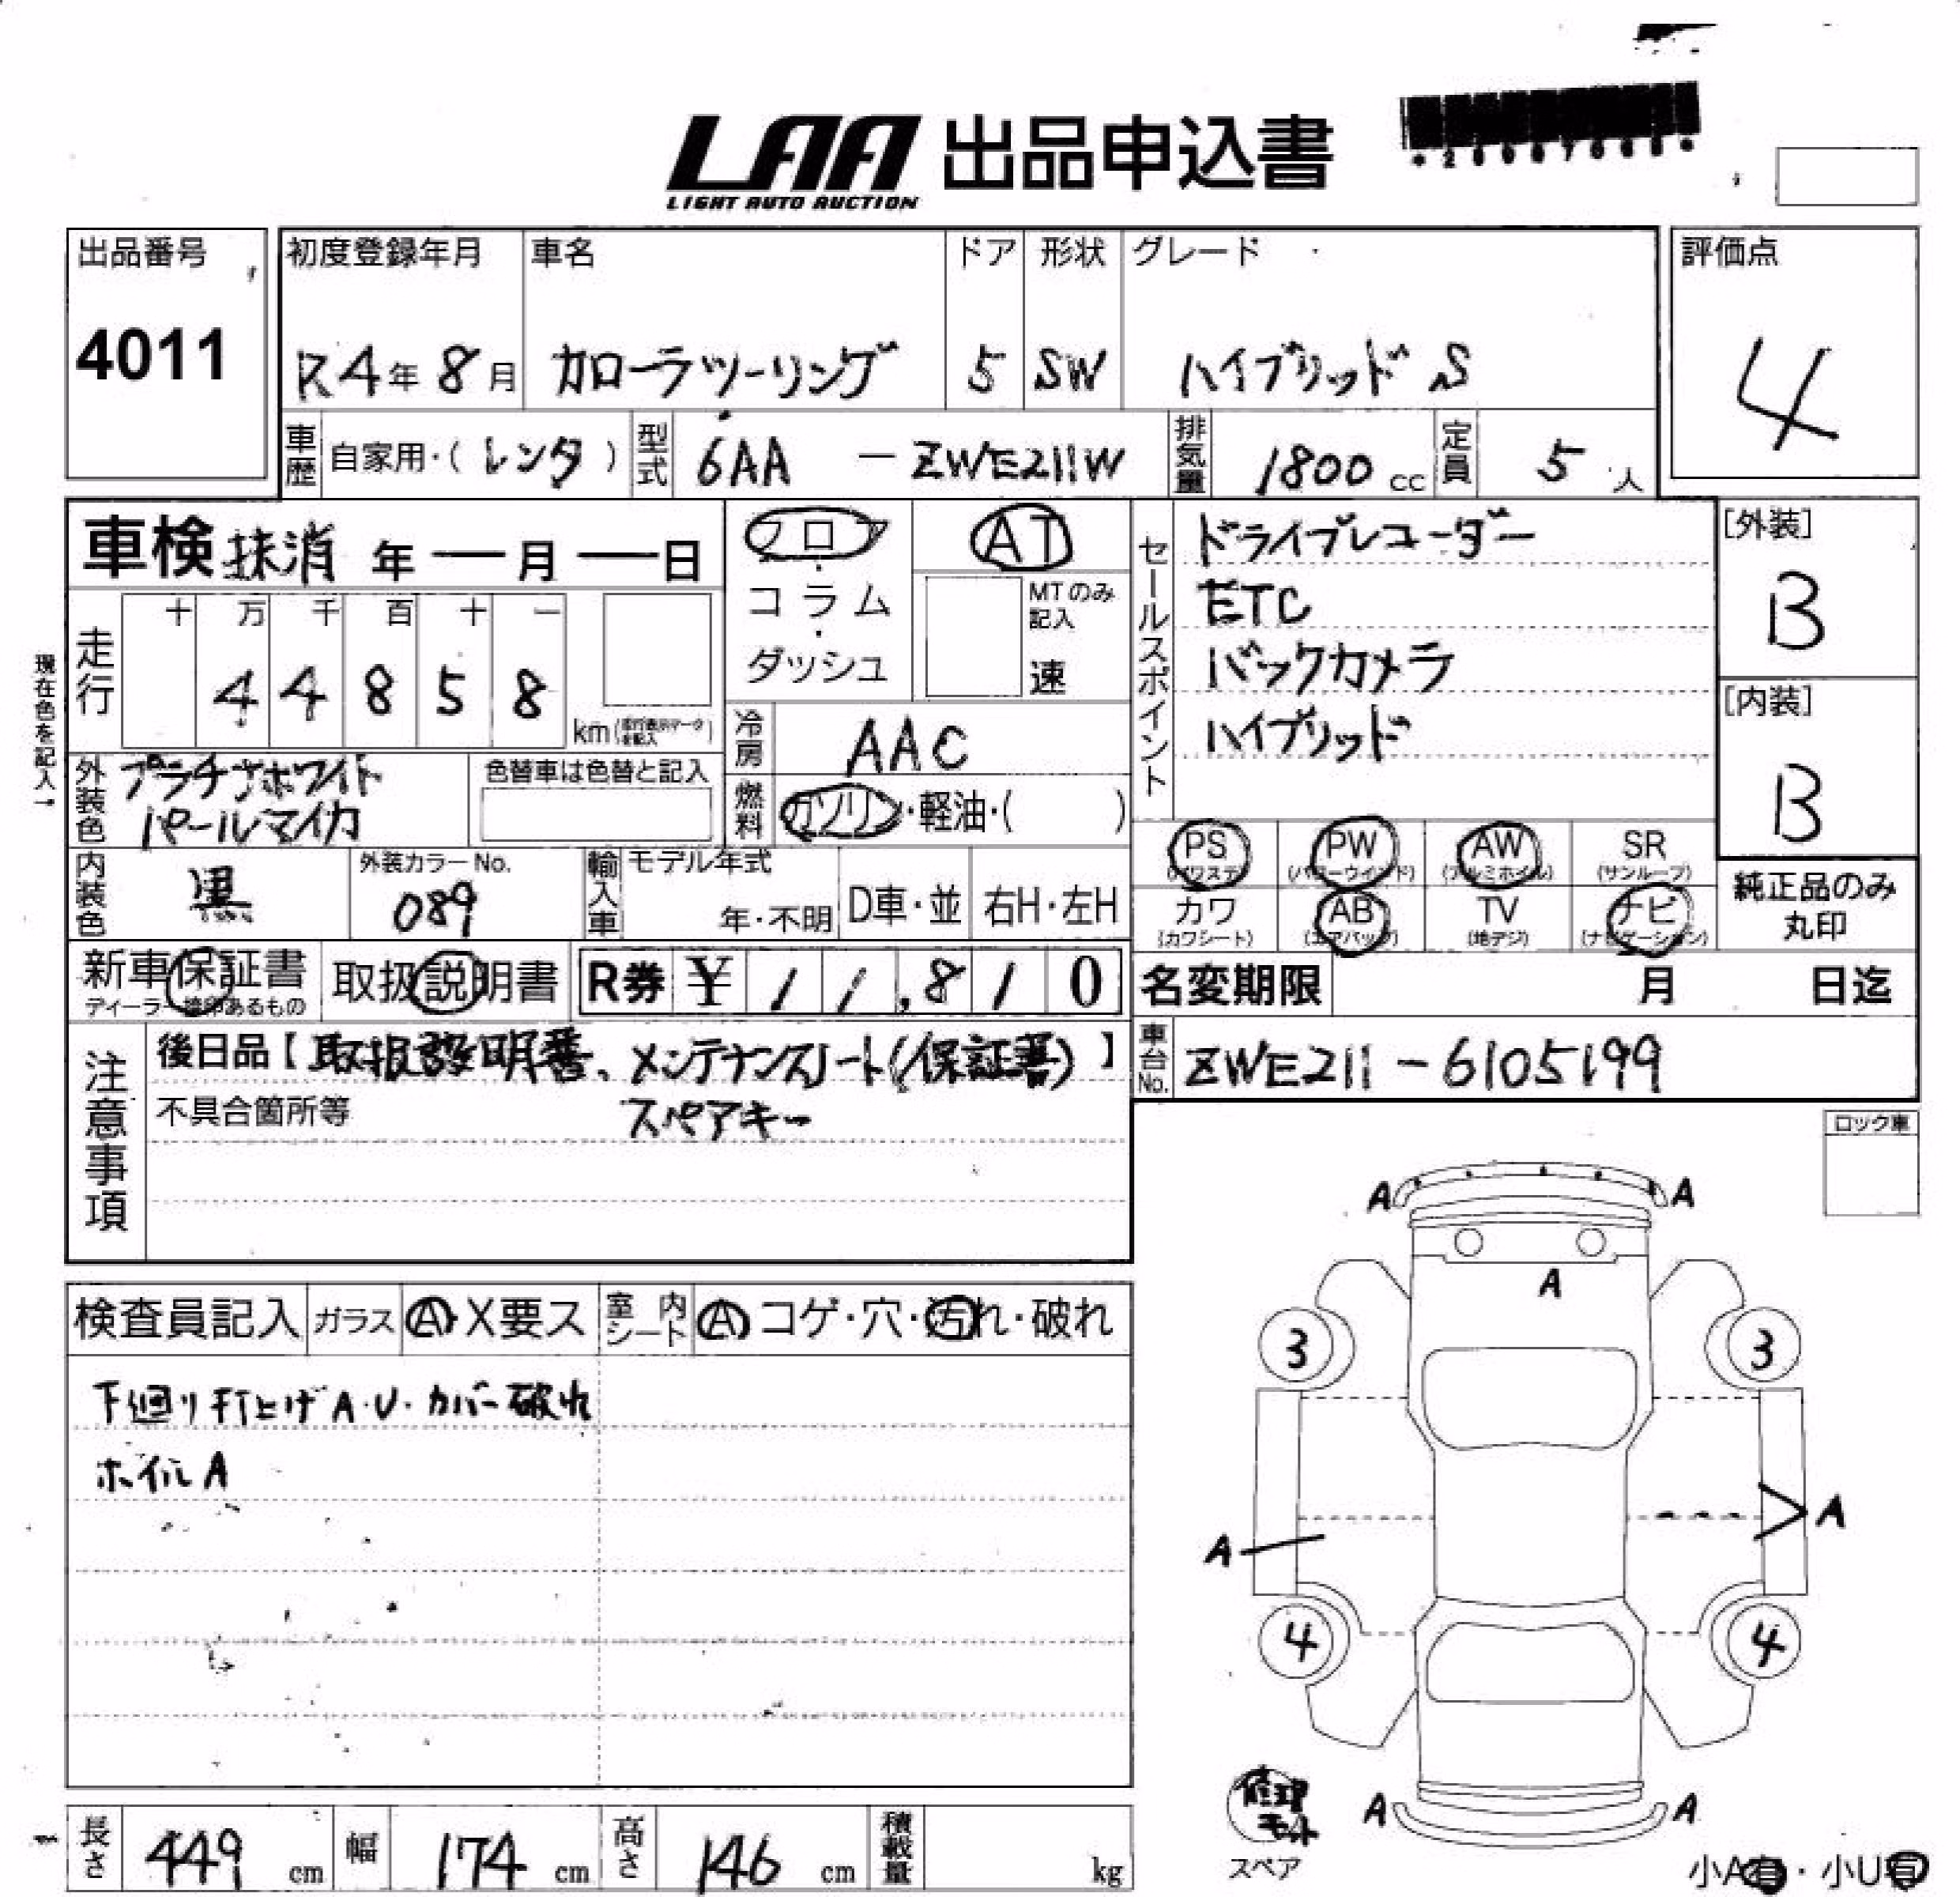 LAA 出品申込書
LIGHT AUTO AUCTION
出品番号
4011
初度登録年月
R4年8月
車名
カローラツーリング
ドア
5
形状
SW
グレード
ハイブリッド S
評価点
4
車歴 自家用・(レンタ)
型式 6AA - ZWE211W
排気量 1800 cc
定員 5 人
車検 抹消 年 ― 月 ― 日
現在色を記入→
走行
十 万 千 百 十 一
4 4 8 5 8
km
フロア・コラム・ダッシュ
AT
MTのみ記入
速
冷房 AAC
燃料 ガソリン・軽油・( )
セールスポイント
ドライブレコーダー
ETC
バックカメラ
ハイブリッド
[外装]
B
[内装]
B
外装色 プラチナホワイト
パールマイカ
色替車は色替と記入
内装色 黒
外装カラーNo.
089
輸入車
モデル年式
年・不明
D車・並
右H・左H
PS
(パワステ)
PW
(パワーウインド)
AW
(アルミホイル)
SR
(サンルーフ)
カワ
(カワシート)
AB
(エアバッグ)
TV
(地デジ)
ナビ
(ナビゲーション)
純正品のみ
丸印
新車保証書
ディーラー捺印あるもの
取扱説明書
R券 ¥ 1 1,8 1 0
名変期限 月 日迄
車台No. ZWE211-6105199
注意事項
後日品【取扱説明書、メンテナンスノート(保証書)】
不具合箇所等 スペアキー
ロック車
検査員記入
ガラス A・X要ス
室内シート A コゲ・穴・汚れ・破れ
下廻り打上げA・U・カバー破れ
ホイルA
A A
A
3 3
A A
4 4
A A
修理キット
スペア
小A有・小U有
長さ 449 cm
幅 174 cm
高さ 146 cm
積載量 kg